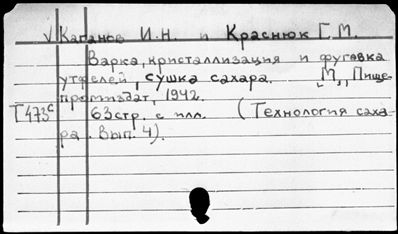 √ Каганов И.Н. и Краснюк Г.М.
Варка, кристаллизация и фуговка
утфелей, сушка сахара. М., Пище-
промиздат, 1942.
Т473с 63стр. с илл. (Технология саха-
ра. Вып. 4).